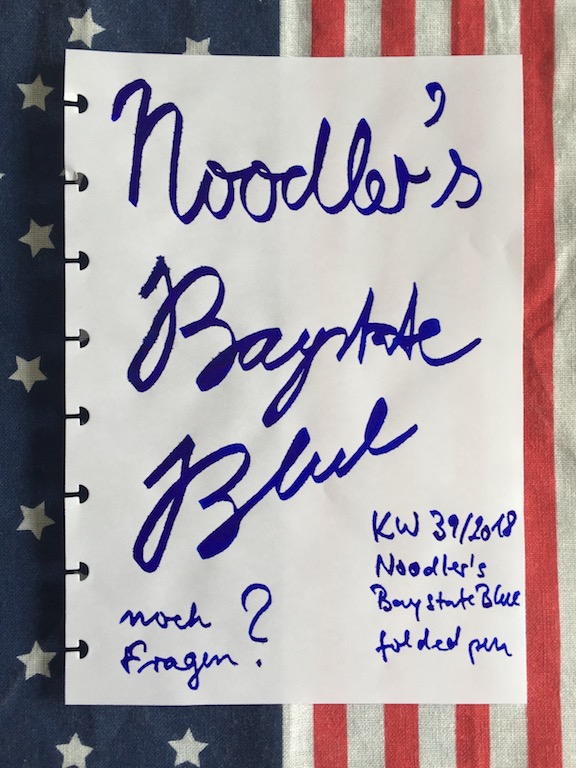 Noodler's
Baystate
Blue
KW 39/2018
Noodler's
Baystate Blue
folded pen
noch
Fragen?